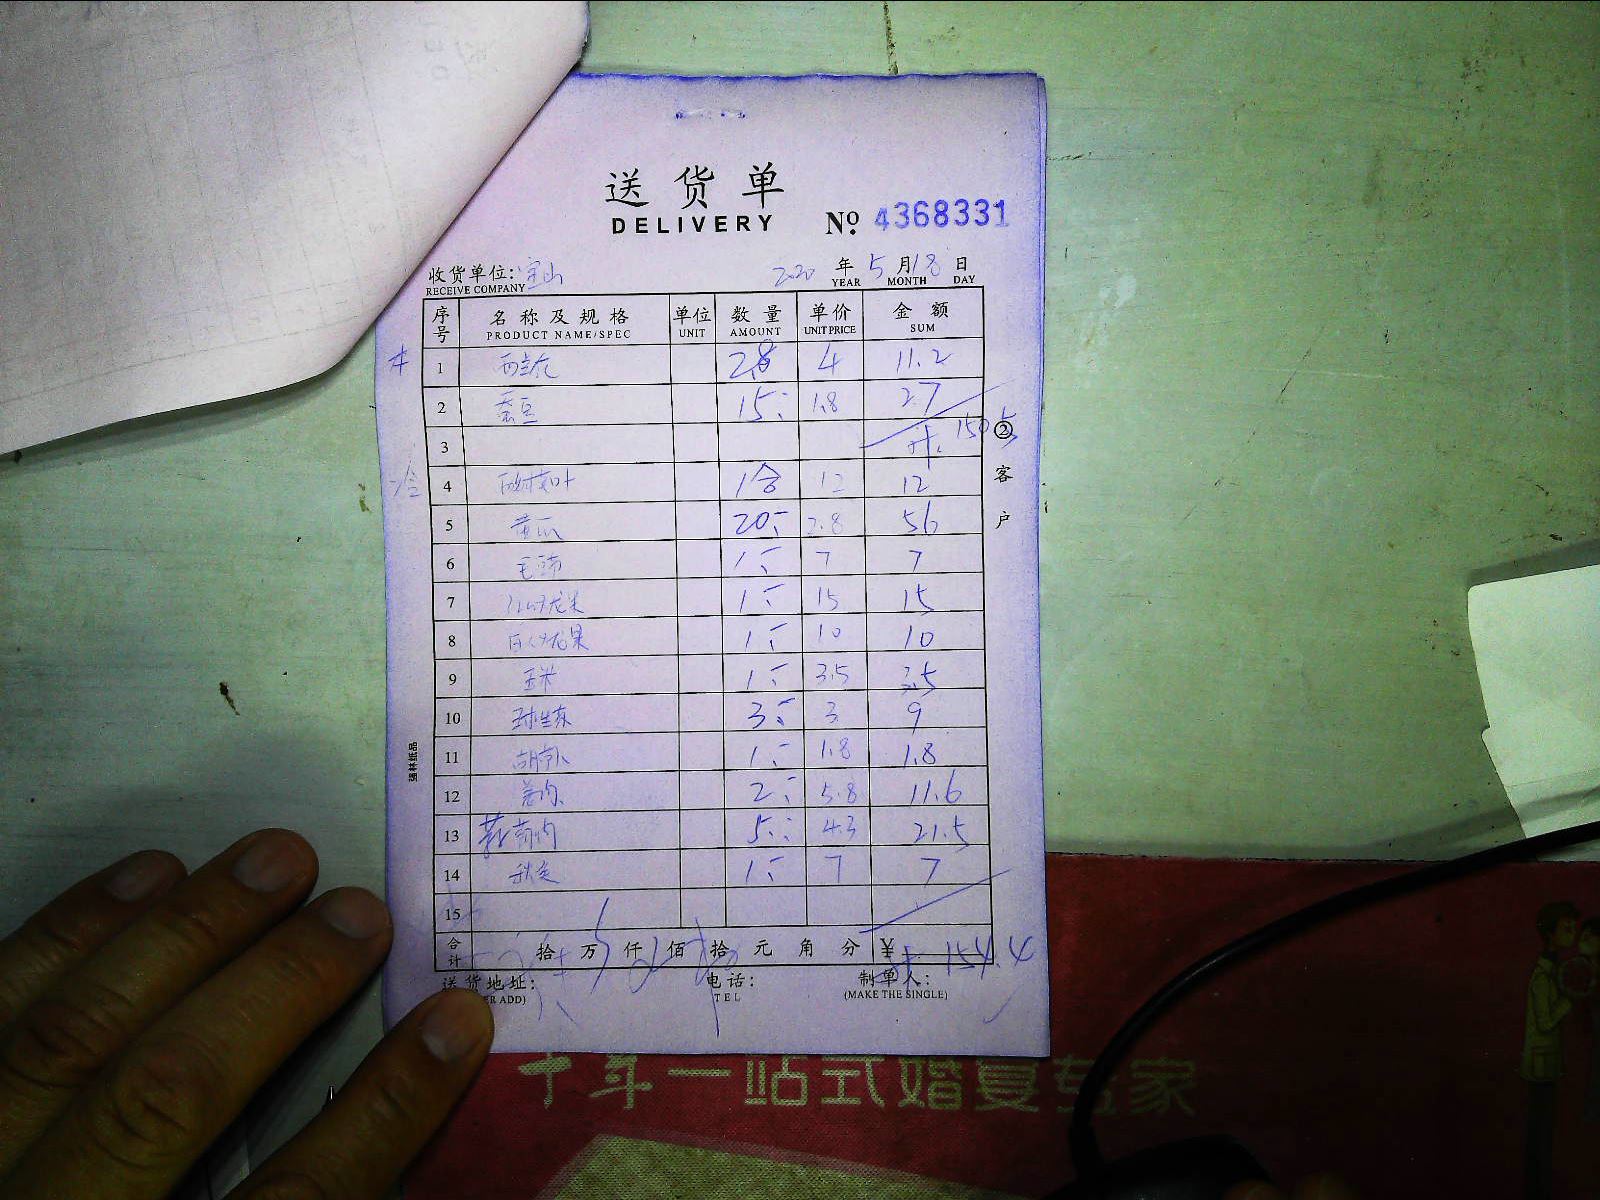 送货单
DELIVERY No. 4368331
收货单位: 宝山 2020 年 5 月 18 日
RECEIVE COMPANY YEAR MONTH DAY
序号 名称及规格 单位 数量 单价 金额
PRODUCT NAME/SPEC UNIT AMOUNT UNIT PRICE SUM
1 2.8 4 11.2
2 蚕豆 15 1.8 27
3
冷 4 1合 12 12
② 客户
5 黄瓜 20 2.8 56
6 1 7 7
7 火龙果 1 15 15
8 白火龙果 1 10 10
9 玉米 1 3.5 3.5
10 球生菜 3 3 9
11 胡萝卜 1 1.8 1.8
12 2 5.8 11.6
13 5 4.3 21.5
14 秋葵 1 7 7
15
合计 拾 万 仟 佰 拾 元 角 分 ¥ 154.4
送货地址: 电话: 制单人:
ER ADD) TEL (MAKE THE SINGLE)
强林纸品
十年一站式婚宴专家